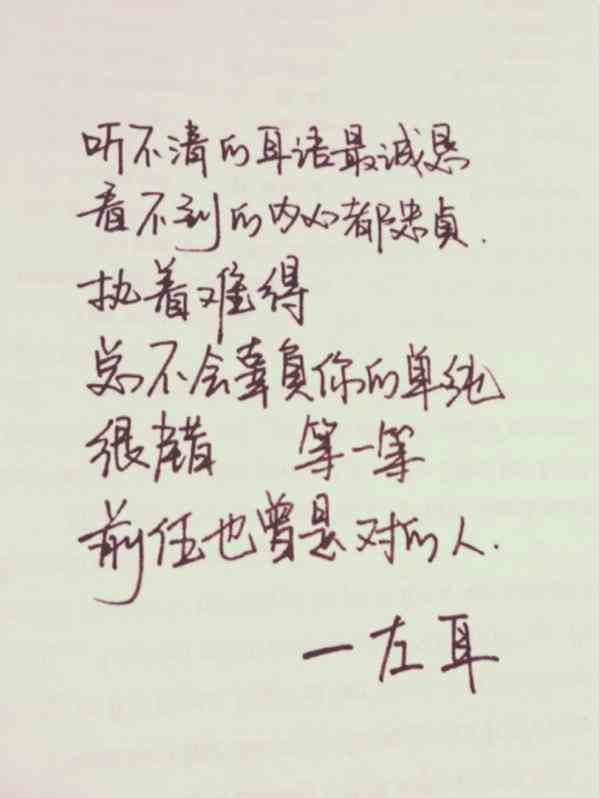 听不清的耳语最诚恳
看不到的内心都忠貞.
执着难得
总不会辜負你的单纯
很 等一等
前任也曾是对的人.
—左耳